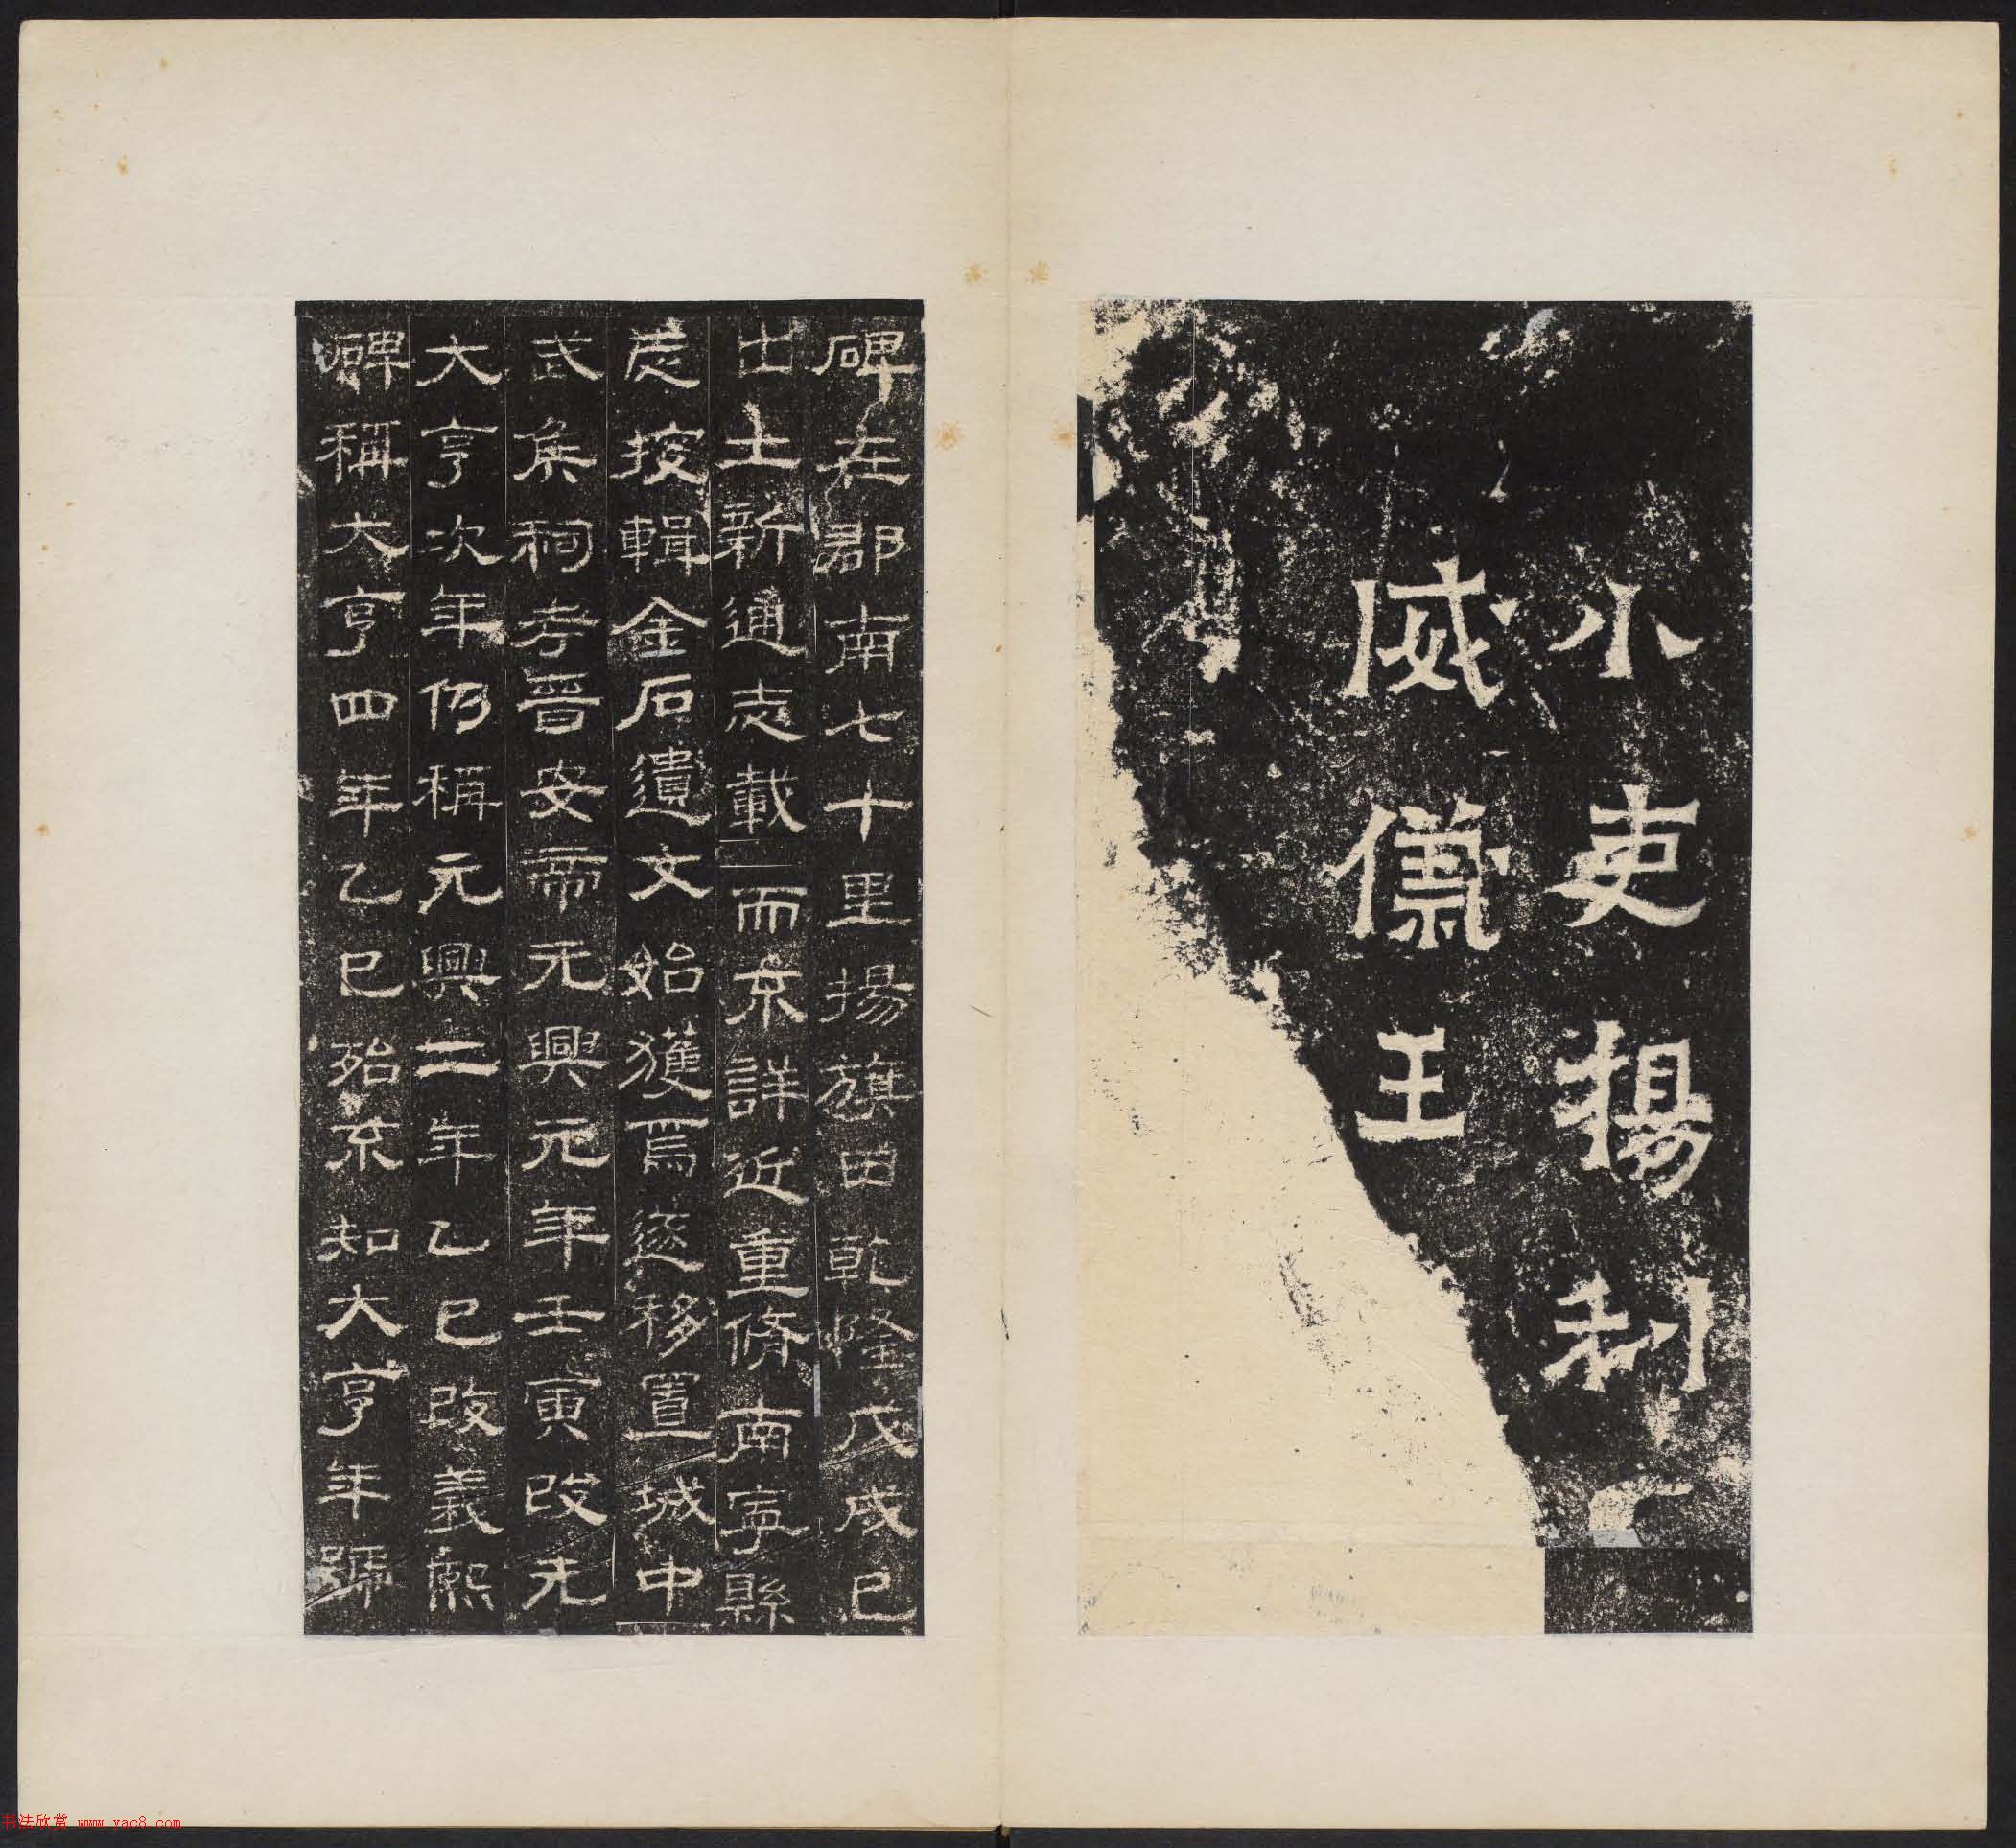 小吏楊利
威儀王
碑在郡南七十里揚旗田乾隆戊戌已
出土新通志載而未詳近重脩南寧縣
志按輯金石遺文始獲焉遂移置城中
武侯祠考晉安帝元興元年壬寅改元
大亨次年仍稱元興二年乙巳改義熙
碑稱大亨四年乙巳殆未知大亨年號
书法欣赏 www.yac8.com